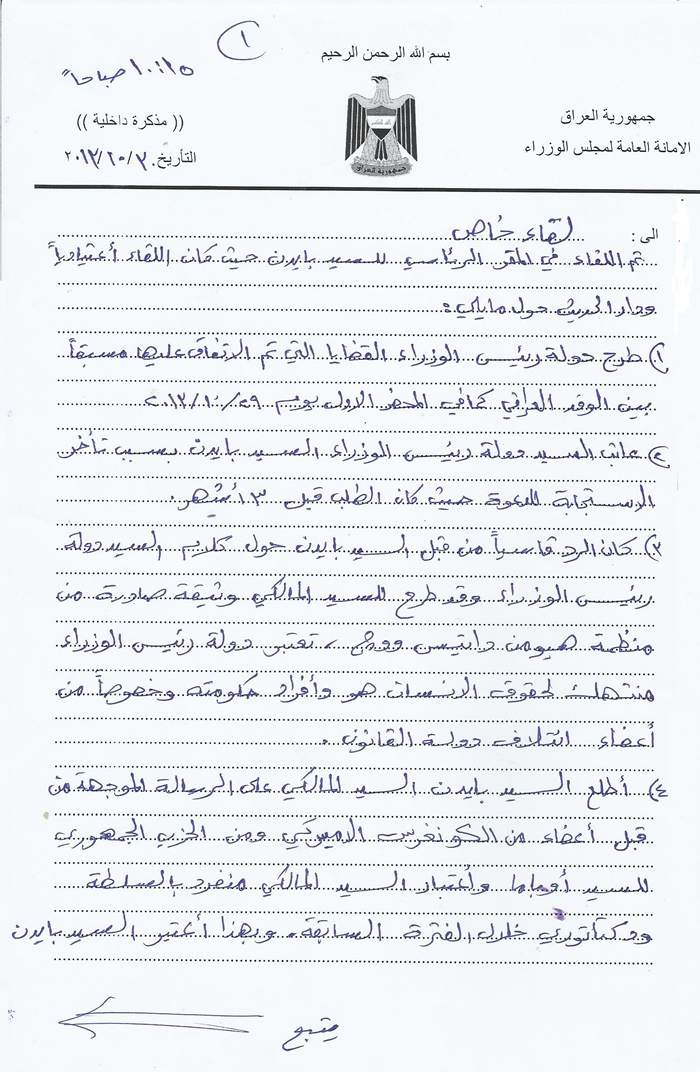 ١
بسم الله الرحمن الرحيم
١٠:١٥ صباحاً
جمهورية العراق
(( مذكرة داخلية ))
الامانة العامة لمجلس الوزراء
التأريخ: ٢٠١٣/١٠/٣٠
جمهورية العراق
الى : لقاء خاص
تم اللقاء في المقر الرئاسي للسيد بايدن حيث كان اللقاء أعتيادياً
ودار الحديث حول مايلي :
١) طرح دولة رئيس الوزراء القضايا التي تم الاتفاق عليها مسبقاً
بين الوفد العراقي كما في المحضر الاول يوم ٢٠١٣/١٠/٢٩
٢) عاتب السيد دولة رئيس الوزراء السيد بايدن بسبب تأخر
الاستجابة للدعوة حيث كان الطلب قبل ٣ أشهر .
٣) كان الرد قاسياً من قبل السيد بايدن حول كلام السيد دولة
رئيس الوزراء وقد طرح للسيد المالكي وثيقة صادرة من
منظمة هيومن رايتس ووج ، تعتبر دولة رئيس الوزراء
منتهك لحقوق الانسان هو وأفراد حكومته وخصوصاً من
أعضاء ائتلاف دولة القانون .
٤) أطلع السيد بايدن السيد المالكي على الرسالة الموجهة من
قبل أعضاء من الكونغرس الاميركي ومن الحزب الجمهوري
للسيد أوباما وأعتبار السيد المالكي منفرد بالسلطة
ودكتاتوري خلال الفترة السابقة . وبهذا أعتبر السيد بايدن
يتبع